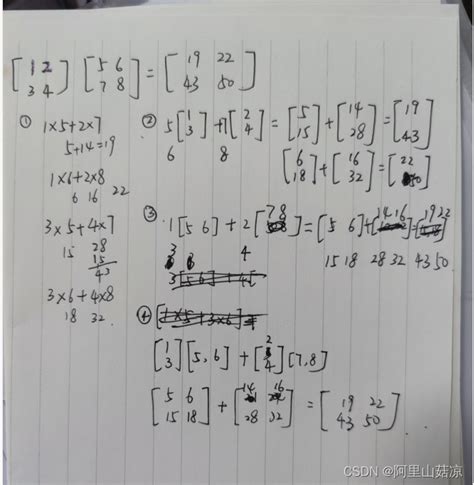 [1 2 3 4] [5 6 7 8] = [19 22 43 50]
① 1×5+2×7
5+14=19
1×6+2×8
6 16 22
3×5+4×7
15 28
15
43
3×6+4×8
18 32
② 5[1 3] + 7[2 4] = [5 15] + [14 28] = [19 43]
6 8 [6 18] + [16 32] = [22 50]
③ 1[5 6] + 2[7 8] = [5 6] + [14 16] = [19 22]
3 4 15 18 28 32 43 50
④
[1 3] [5,6] + [2 4] [7,8]
[5 6 15 18] + [14 16 28 32] = [19 22 43 50]
CSDN @阿里山菇凉